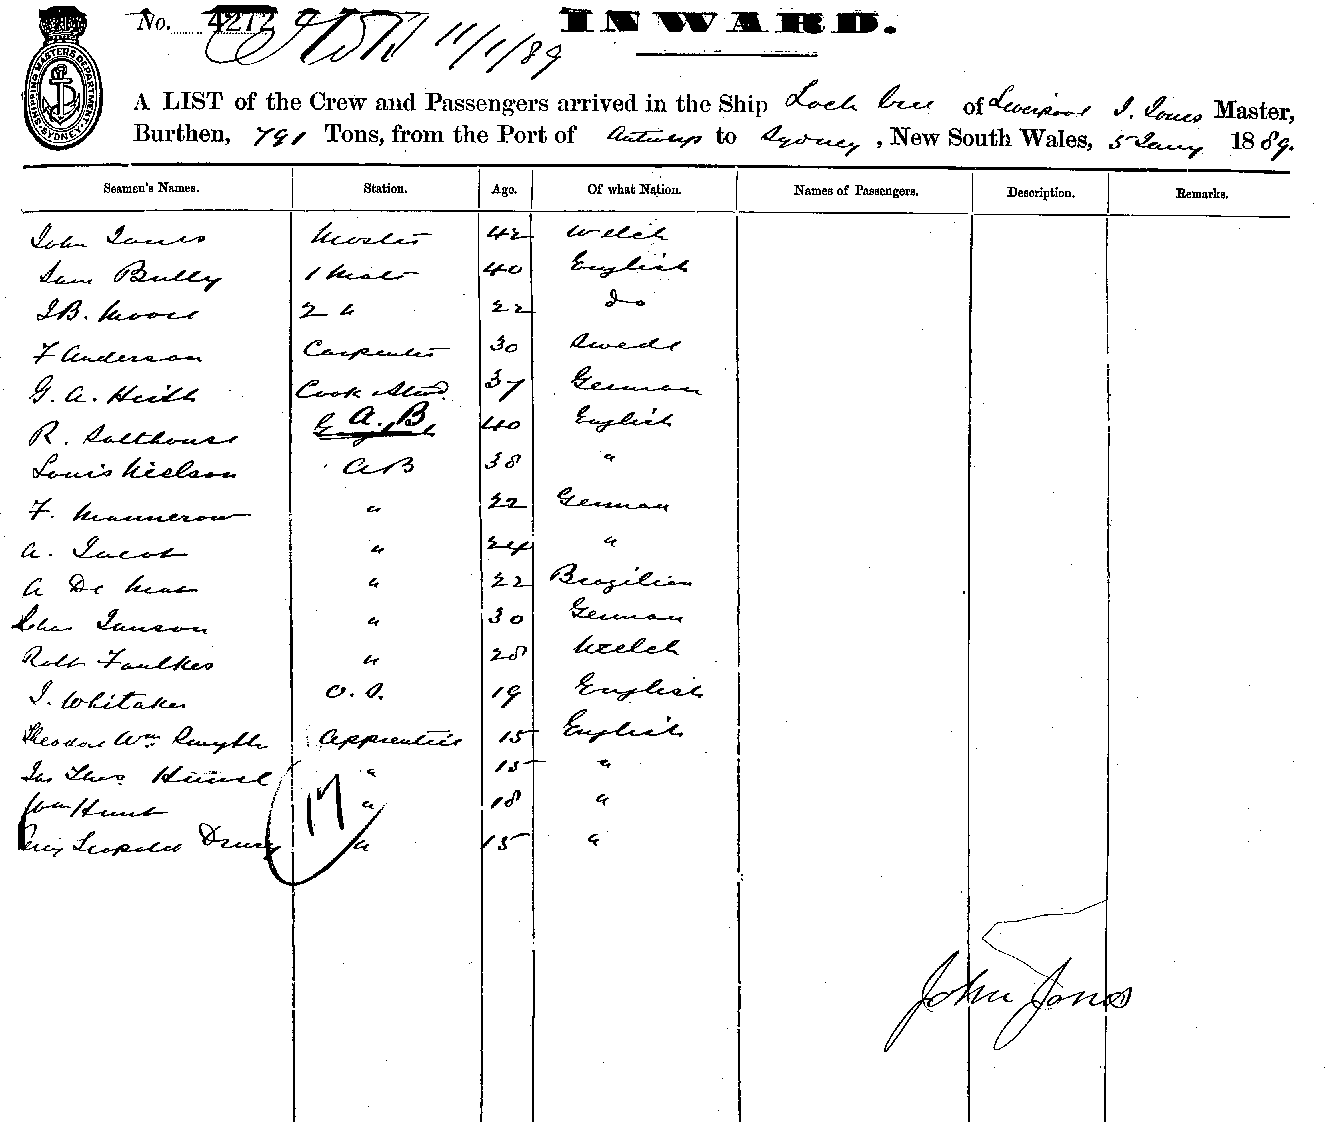 No. 4272 11/1/89 INWARD.
SHIPPING MASTERS DEPARTMENT SYDNEY
A LIST of the Crew and Passengers arrived in the Ship Loch of Liverpool J. Jones Master,
Burthen, 791 Tons, from the Port of Antwerp to Sydney, New South Wales, 5 Jany 1889.
Seamen's Names. Station. Age. Of what Nation. Names of Passengers. Description. Remarks.
John Jones Master 42 Welch
Sam Bully 1 Mate 40 English
J.B. Moore 2 " 22 Do
F Anderson Carpenter 30 Swede
G. A. Heith Cook Stwd 37 German
R. Salthouse A.B 40 English
Louis Nielson AB 38 "
F. Mannerow " 22 German
A. Jacob " 24 "
A De " 22 Brazilian
Chas Janson " 30 German
Robt Faulkes " 28 Welch
J. Whitaker O.S. 19 English
Theodore Wm Smyth Apprentice 15 English
Jas Thos " 15 "
Wm Hunt " 18 "
Percy Leopold Drury " 15 "
17
John Jones